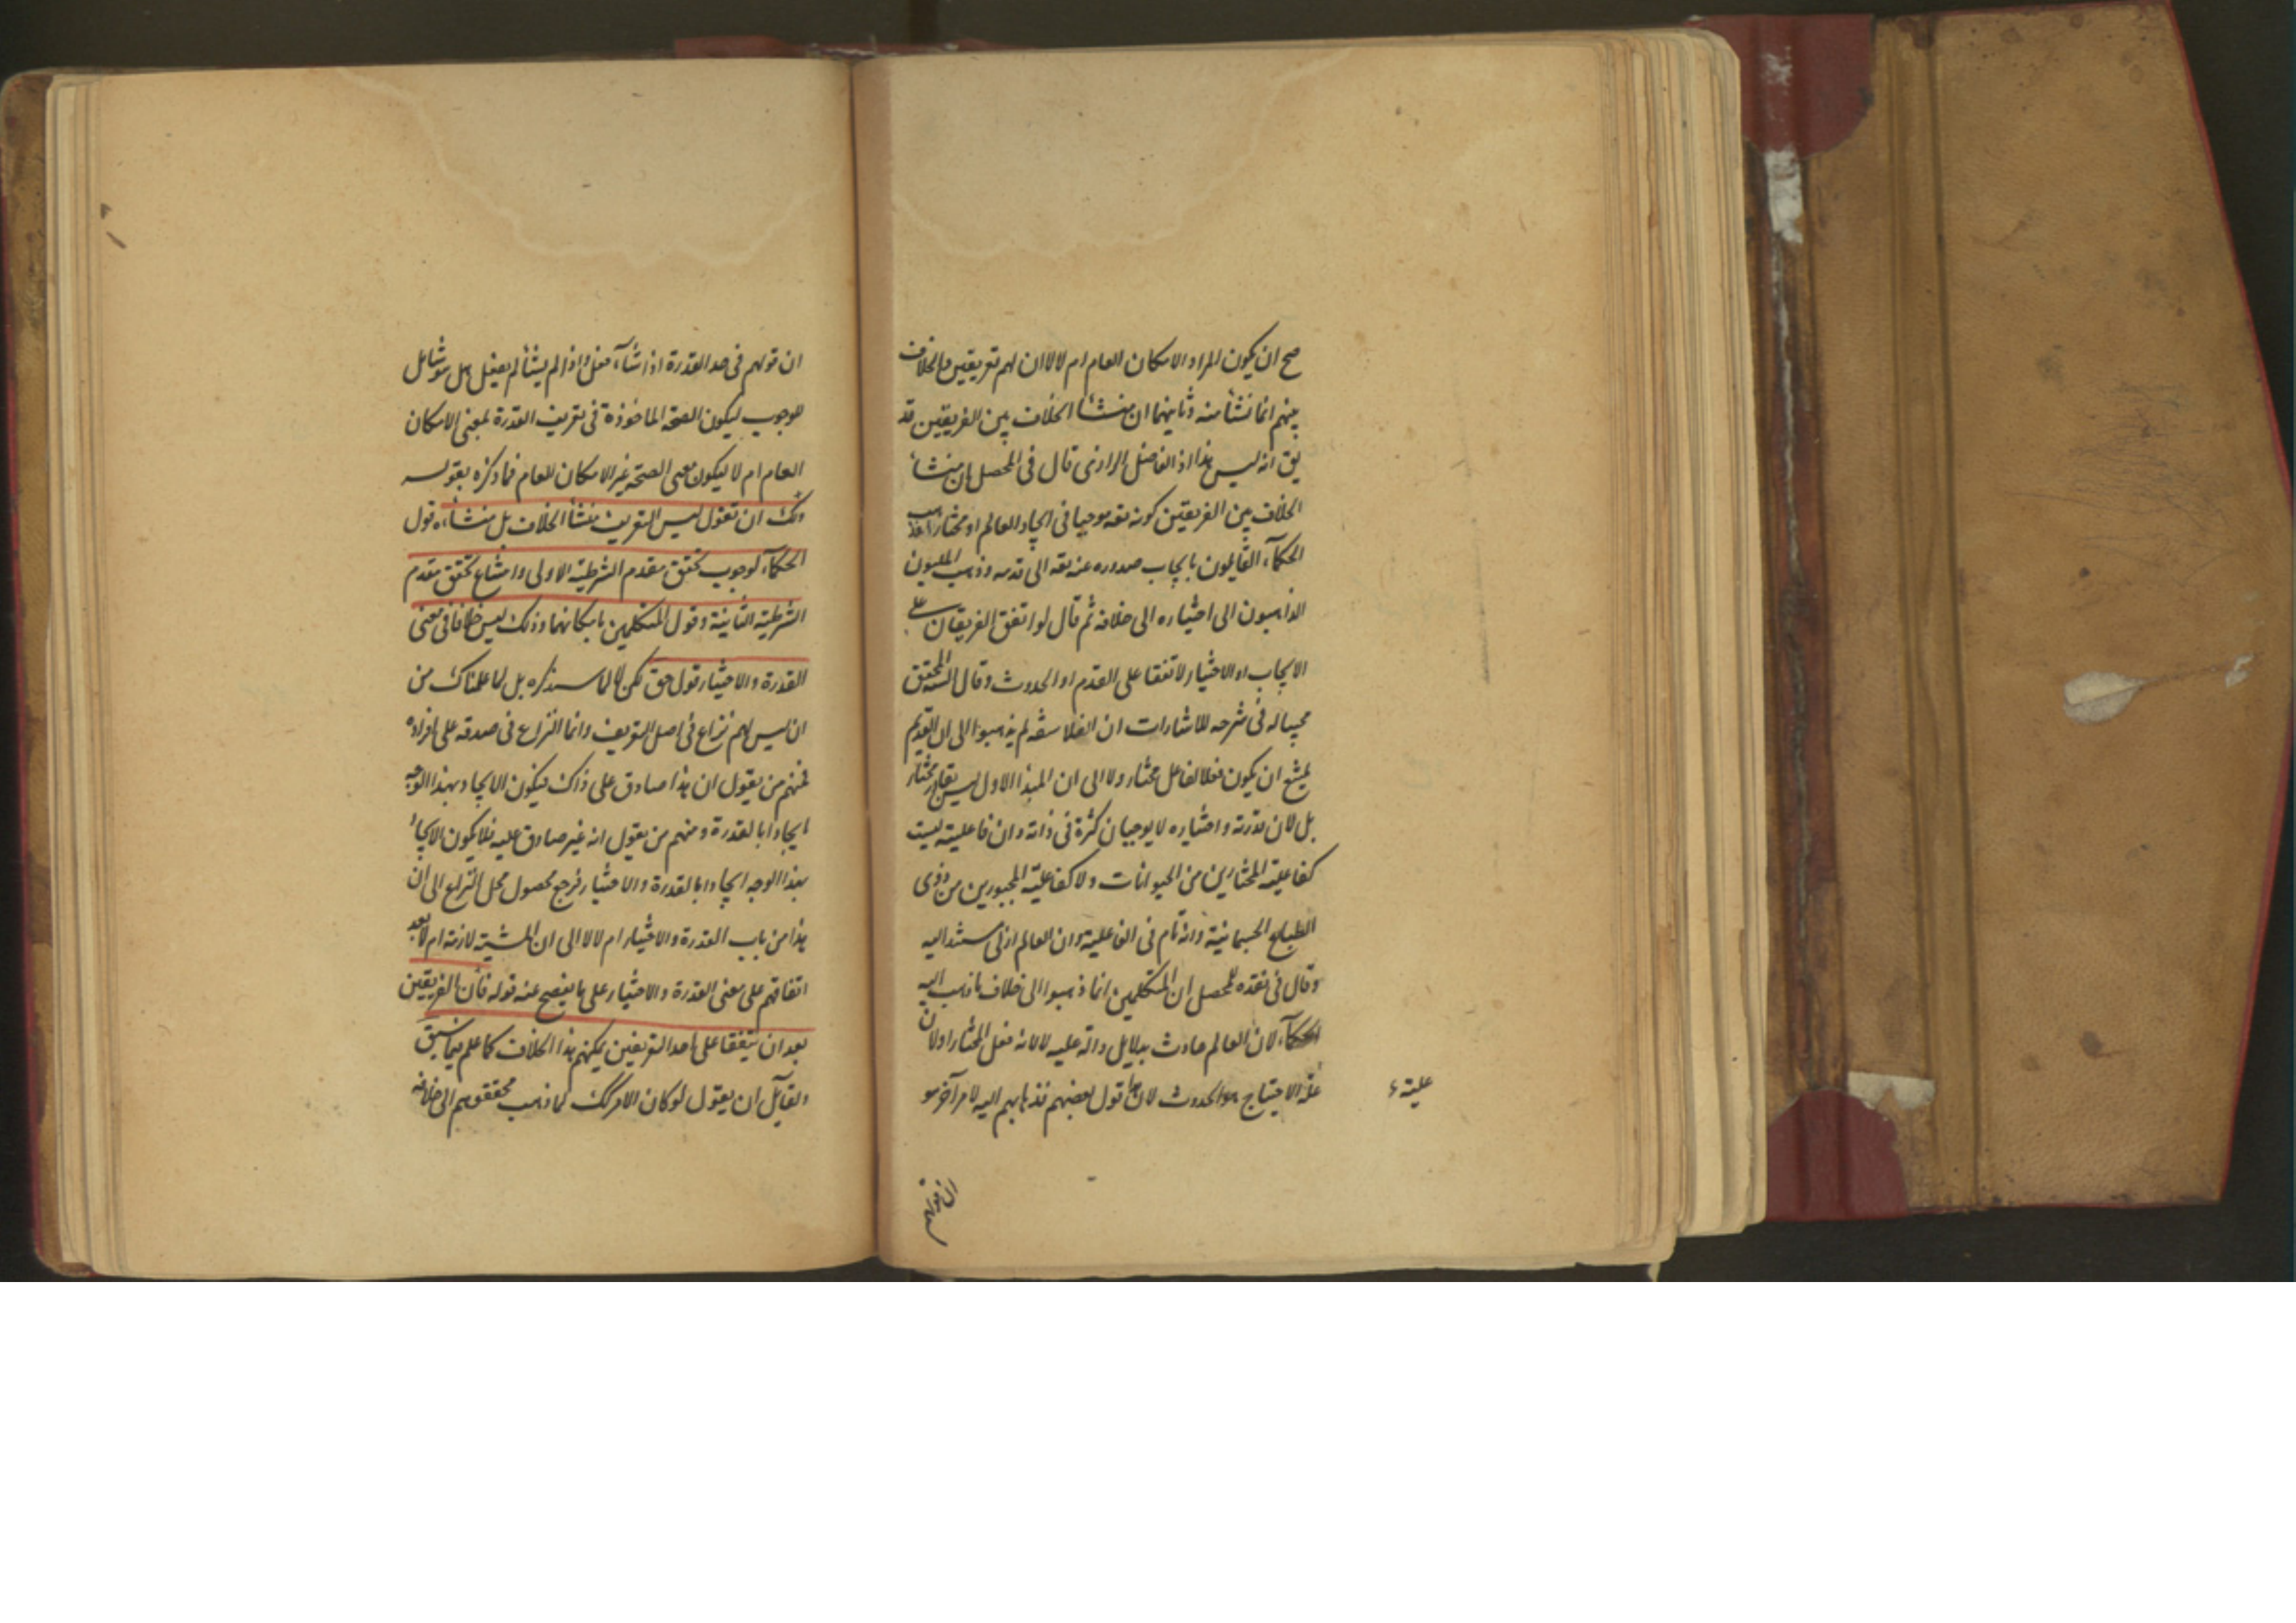 صح ان يكون المراد الامكان العام ام لا لا ان لهم تعريفين والخلاف
بينهم انما نشأ منه وثانيهما ان منشأ الخلاف بين الفريقين قد
يق انه ليس هذا اذ الفاضل الرازى قال فى المحصل ان منشأ
الخلاف بين الفريقين كونه تعه موجبا فى ايجاد العالم او مختارا
الحكمآء القايلون بايجاب صدوره عنه تعه الى قدمه وذهب المليون
الذاهبون الى اختياره الى خلافه ثم قال لو اتفق الفريقان على
الايجاب او الاختيار لاتفقا على القدم او الحدوث وقال المحقق
مجيبا له فى شرحه للاشارات ان الفلاسفة لم يذهبوا الى ان القديم
يمتنع ان يكون فعلا لفاعل مختار ولا الى ان المبدأ الاول ليس بقادر مختار
بل لان قدرته واختياره لا يوجبان كثرة فى ذاته وان فاعليته ليست
كفاعلية المختارين من الحيوانات ولا كفاعلية المجبورين من ذوى
الطبايع الجسمانية وانه تام فى الفاعلية وان العالم ازلى مستند اليه
وقال فى نقده للمحصل ان المتكلمين انما ذهبوا الى خلاف ما ذهب اليه
الحكمآء لان العالم حادث بدلايل دالة عليه لا لانه فعل المختار او لان
علة الاحتياج هو الحدوث لان قول بعضهم فذهابهم اليه لامر آخر هو
علية
ان قولهم
ان قولهم فى حد القدرة اذا شآء فعل واذا لم يشأ لم يفعل هل هو شامل
للوجوب ليكون الصحة الماخوذة فى تعريف القدرة بمعنى الامكان
العام ام لا ليكون معنى الصحة غير الامكان العام فما ذكره بقوله
ولك ان تقول ليس التعريف منشأ الخلاف بل منشاءه قول
الحكمآء لوجوب تحقق مقدم الشرطية الاولى وامتناع تحقق مقدم
الشرطية الثانية وقول المتكلمين بامكانهما وذلك ليس خلافا فى معنى
القدرة والاختيار قول حق لكن لا لما سنذكره بل لما علمناك من
ان ليس لهم نزاع فى اصل التعريف وانما النزاع فى صدقه على افراده
فمنهم من يقول ان هذا صادق على ذاك فيكون الايجاد بهذا الوجه
ايجادا بالقدرة ومنهم من يقول انه غير صادق عليه فلا يكون الايجاد
بهذا الوجه ايجادا بالقدرة والاختيار فرجع محصول محل النزاع الى ان
هذا من باب القدرة والاختيار ام لا لا الى ان المشية لازمة ام لا بعد
اتفاقهم على معنى القدرة والاختيار على ما يفصح عنه قوله فان الفريقين
بعد ان يتفقا على احد التعريفين يمكنهم هذا الخلاف كما علم فيما سبق
ولقآئل ان يقول لو كان الامر كك لما ذهب محققوهم الى خلافه